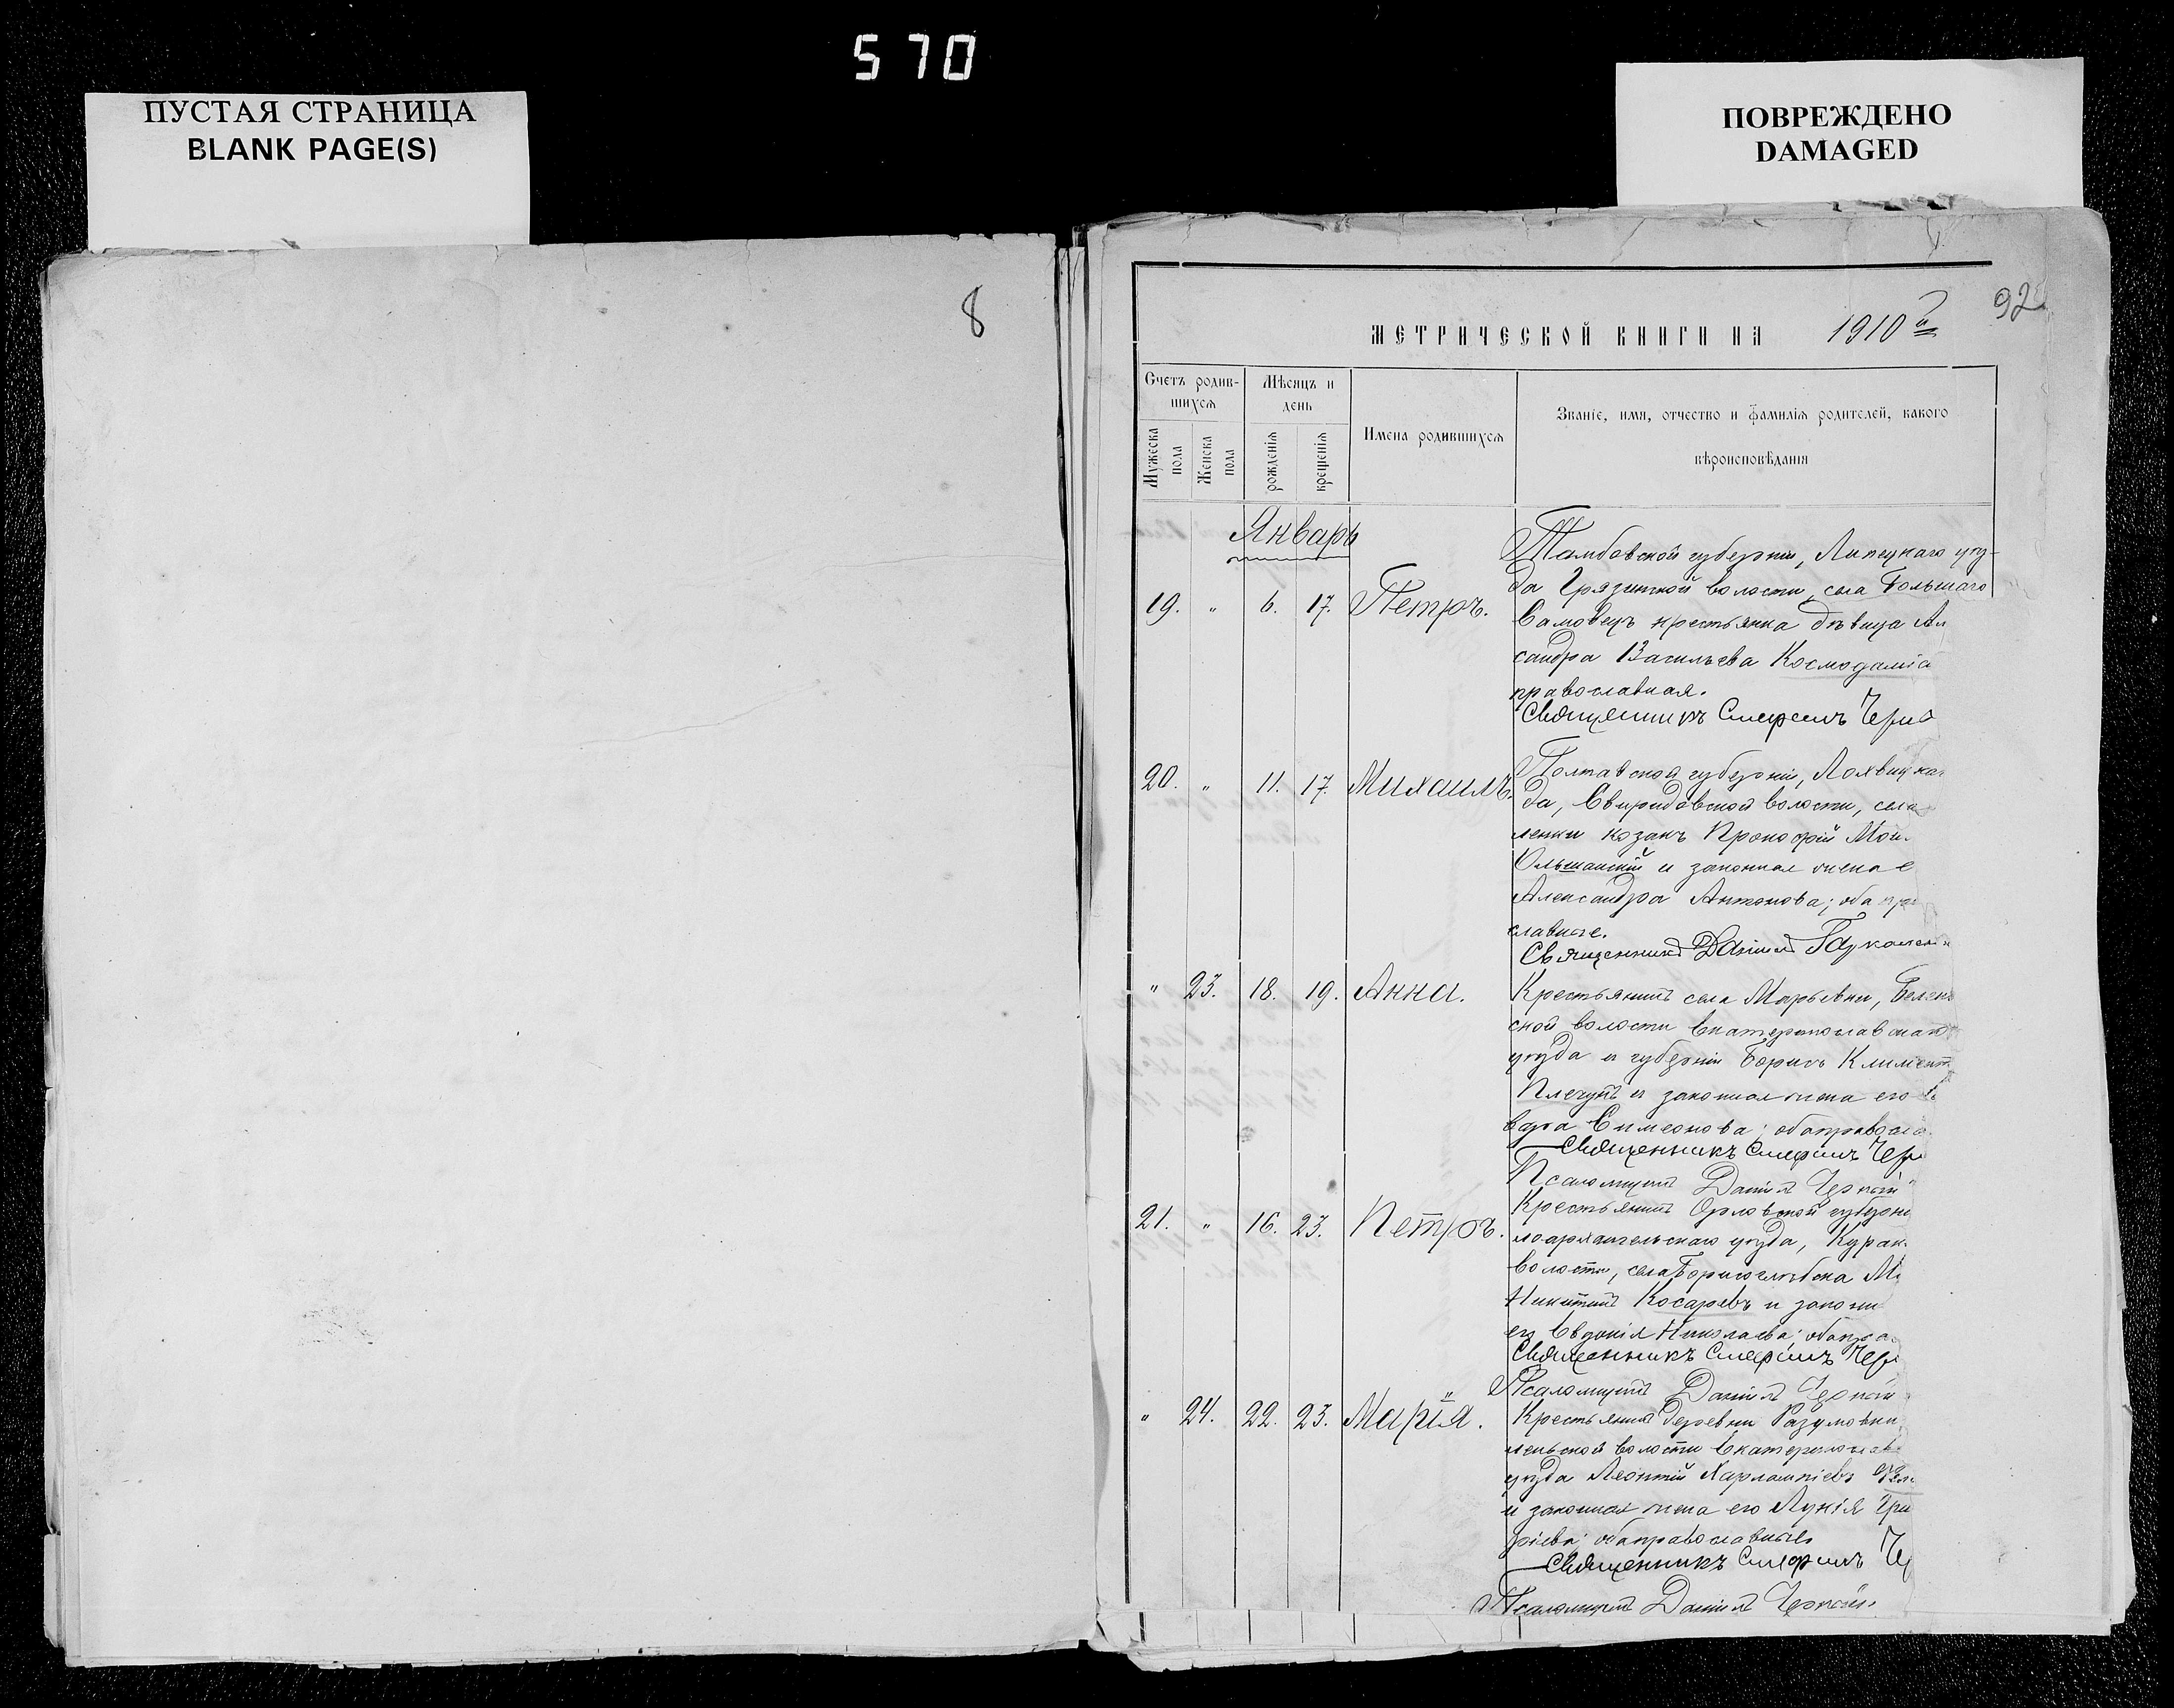 570
ПУСТАЯ СТРАНИЦА
BLANK PAGE(S)
ПОВРЕЖДЕНО
DAMAGED
8
92
МЕТРИЧЕСКОЙ КНИГИ НА 1910 й
Счетъ родив-
шихся
Мѣсяцъ и
день
Имена родившихся
Званіе, имя, отчество и фамилія родителей, какого
вѣроисповѣданія
Мужеска
пола
Женска
пола
рожденія
крещенія
Январь
19. " 6. 17. Петръ.
Тамбовской губерніи, Липецкаго уѣз-
да Грязинской волости, села Большаго
Самовецъ крестьянка дѣвица Ал
сандра Васильева Космодаміа
православная.
Священникъ Симеонъ Черн
20. " 11. 17. Михаилъ.
Полтавской губерніи, Лохвицка
да, Свиридовской волости, села
ленки козакъ Прокофій Мои
Ольшанскій и законная жена е
Александра Антонова; оба пра
славные.
Священникъ Даніилъ
" 23. 18. 19. Анна.
Крестьянинъ села Марьевки, Белень
ской волости Екатеринославскаго
уѣзда и губерніи Борисъ Климент
Плечунъ и законная жена его
Симеонова; оба правосла
Священникъ Симеонъ Чер
Псаломщикъ Даніилъ Черный
21. " 16. 23. Петръ.
Крестьянинъ Орловской губерні
лоархангельскаго уѣзда, Курак
волости, села Борисоглѣбска М
Никитинъ Косаревъ и законн
его Евдокія Николаева; оба пра
Священникъ Симеонъ Чер
Псаломщикъ Даніилъ Черный
" 24. 22. 23. Марія.
Крестьянинъ деревни Разумовки
ленской волости Екатеринослав
уѣзда Леонтій Харлампіевъ
и законная жена его Лукія Гри
ріева; оба православные
Священникъ Симеонъ Че
Псаломщикъ Даніилъ Черный